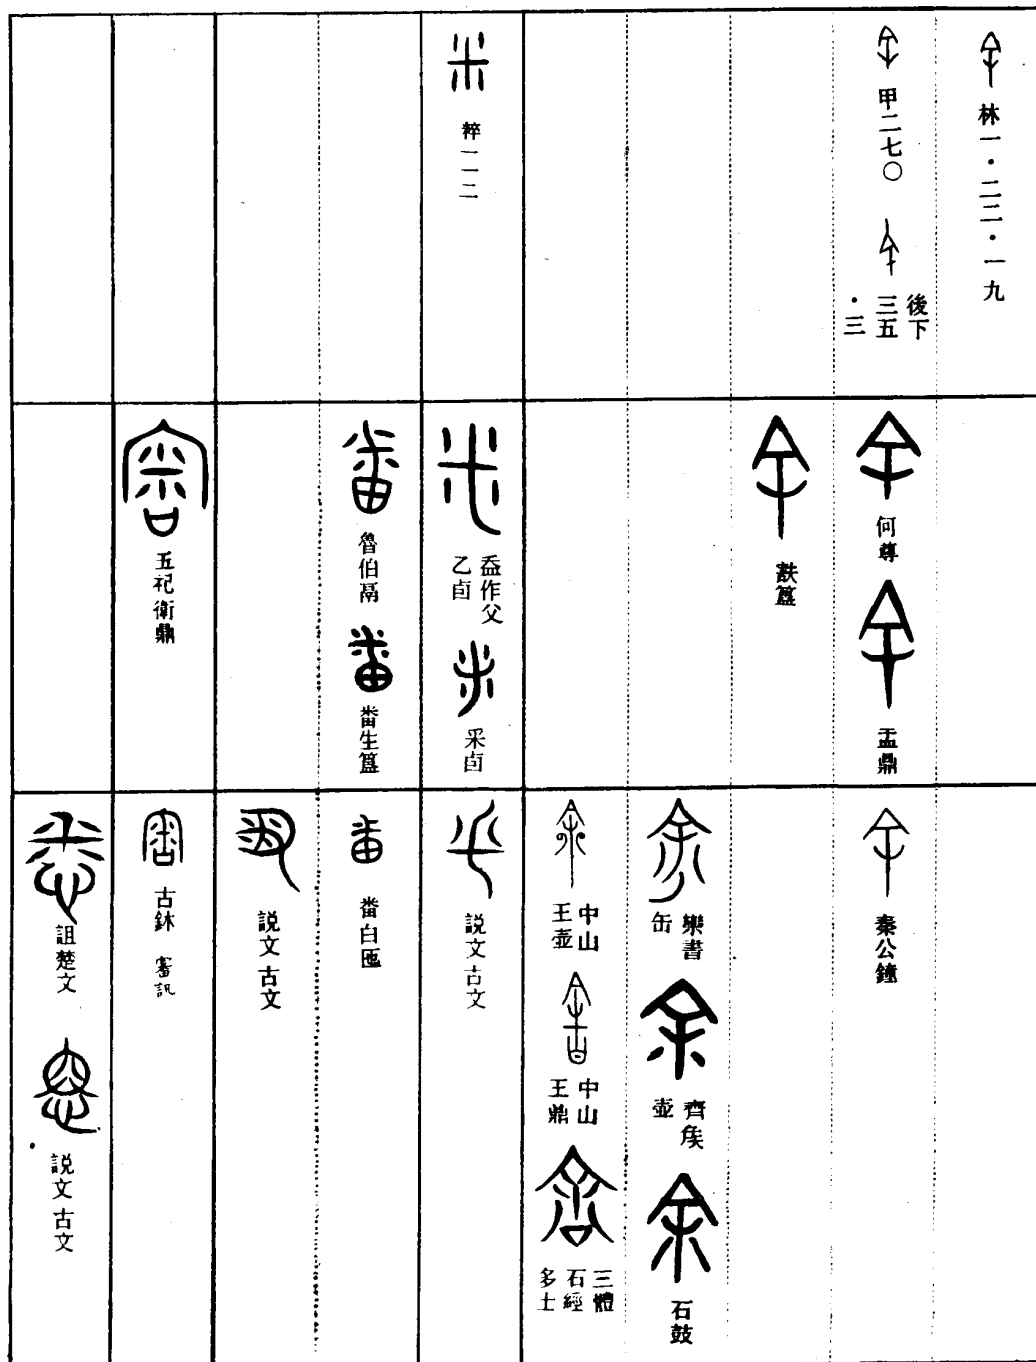 林一·二二·一九
甲二七〇
後下
三五
·三
粹一一二
何尊
盂鼎
㝬簋
作父
乙卣
采卣
魯伯鬲
番生簋
五祀衛鼎
秦公鐘
欒書
缶
齊矦
壺
石鼓
中山
王壺
中山
王鼎
三體
石經
多士
説文古文
番白匜
説文古文
古鉢 審訊
詛楚文
説文古文